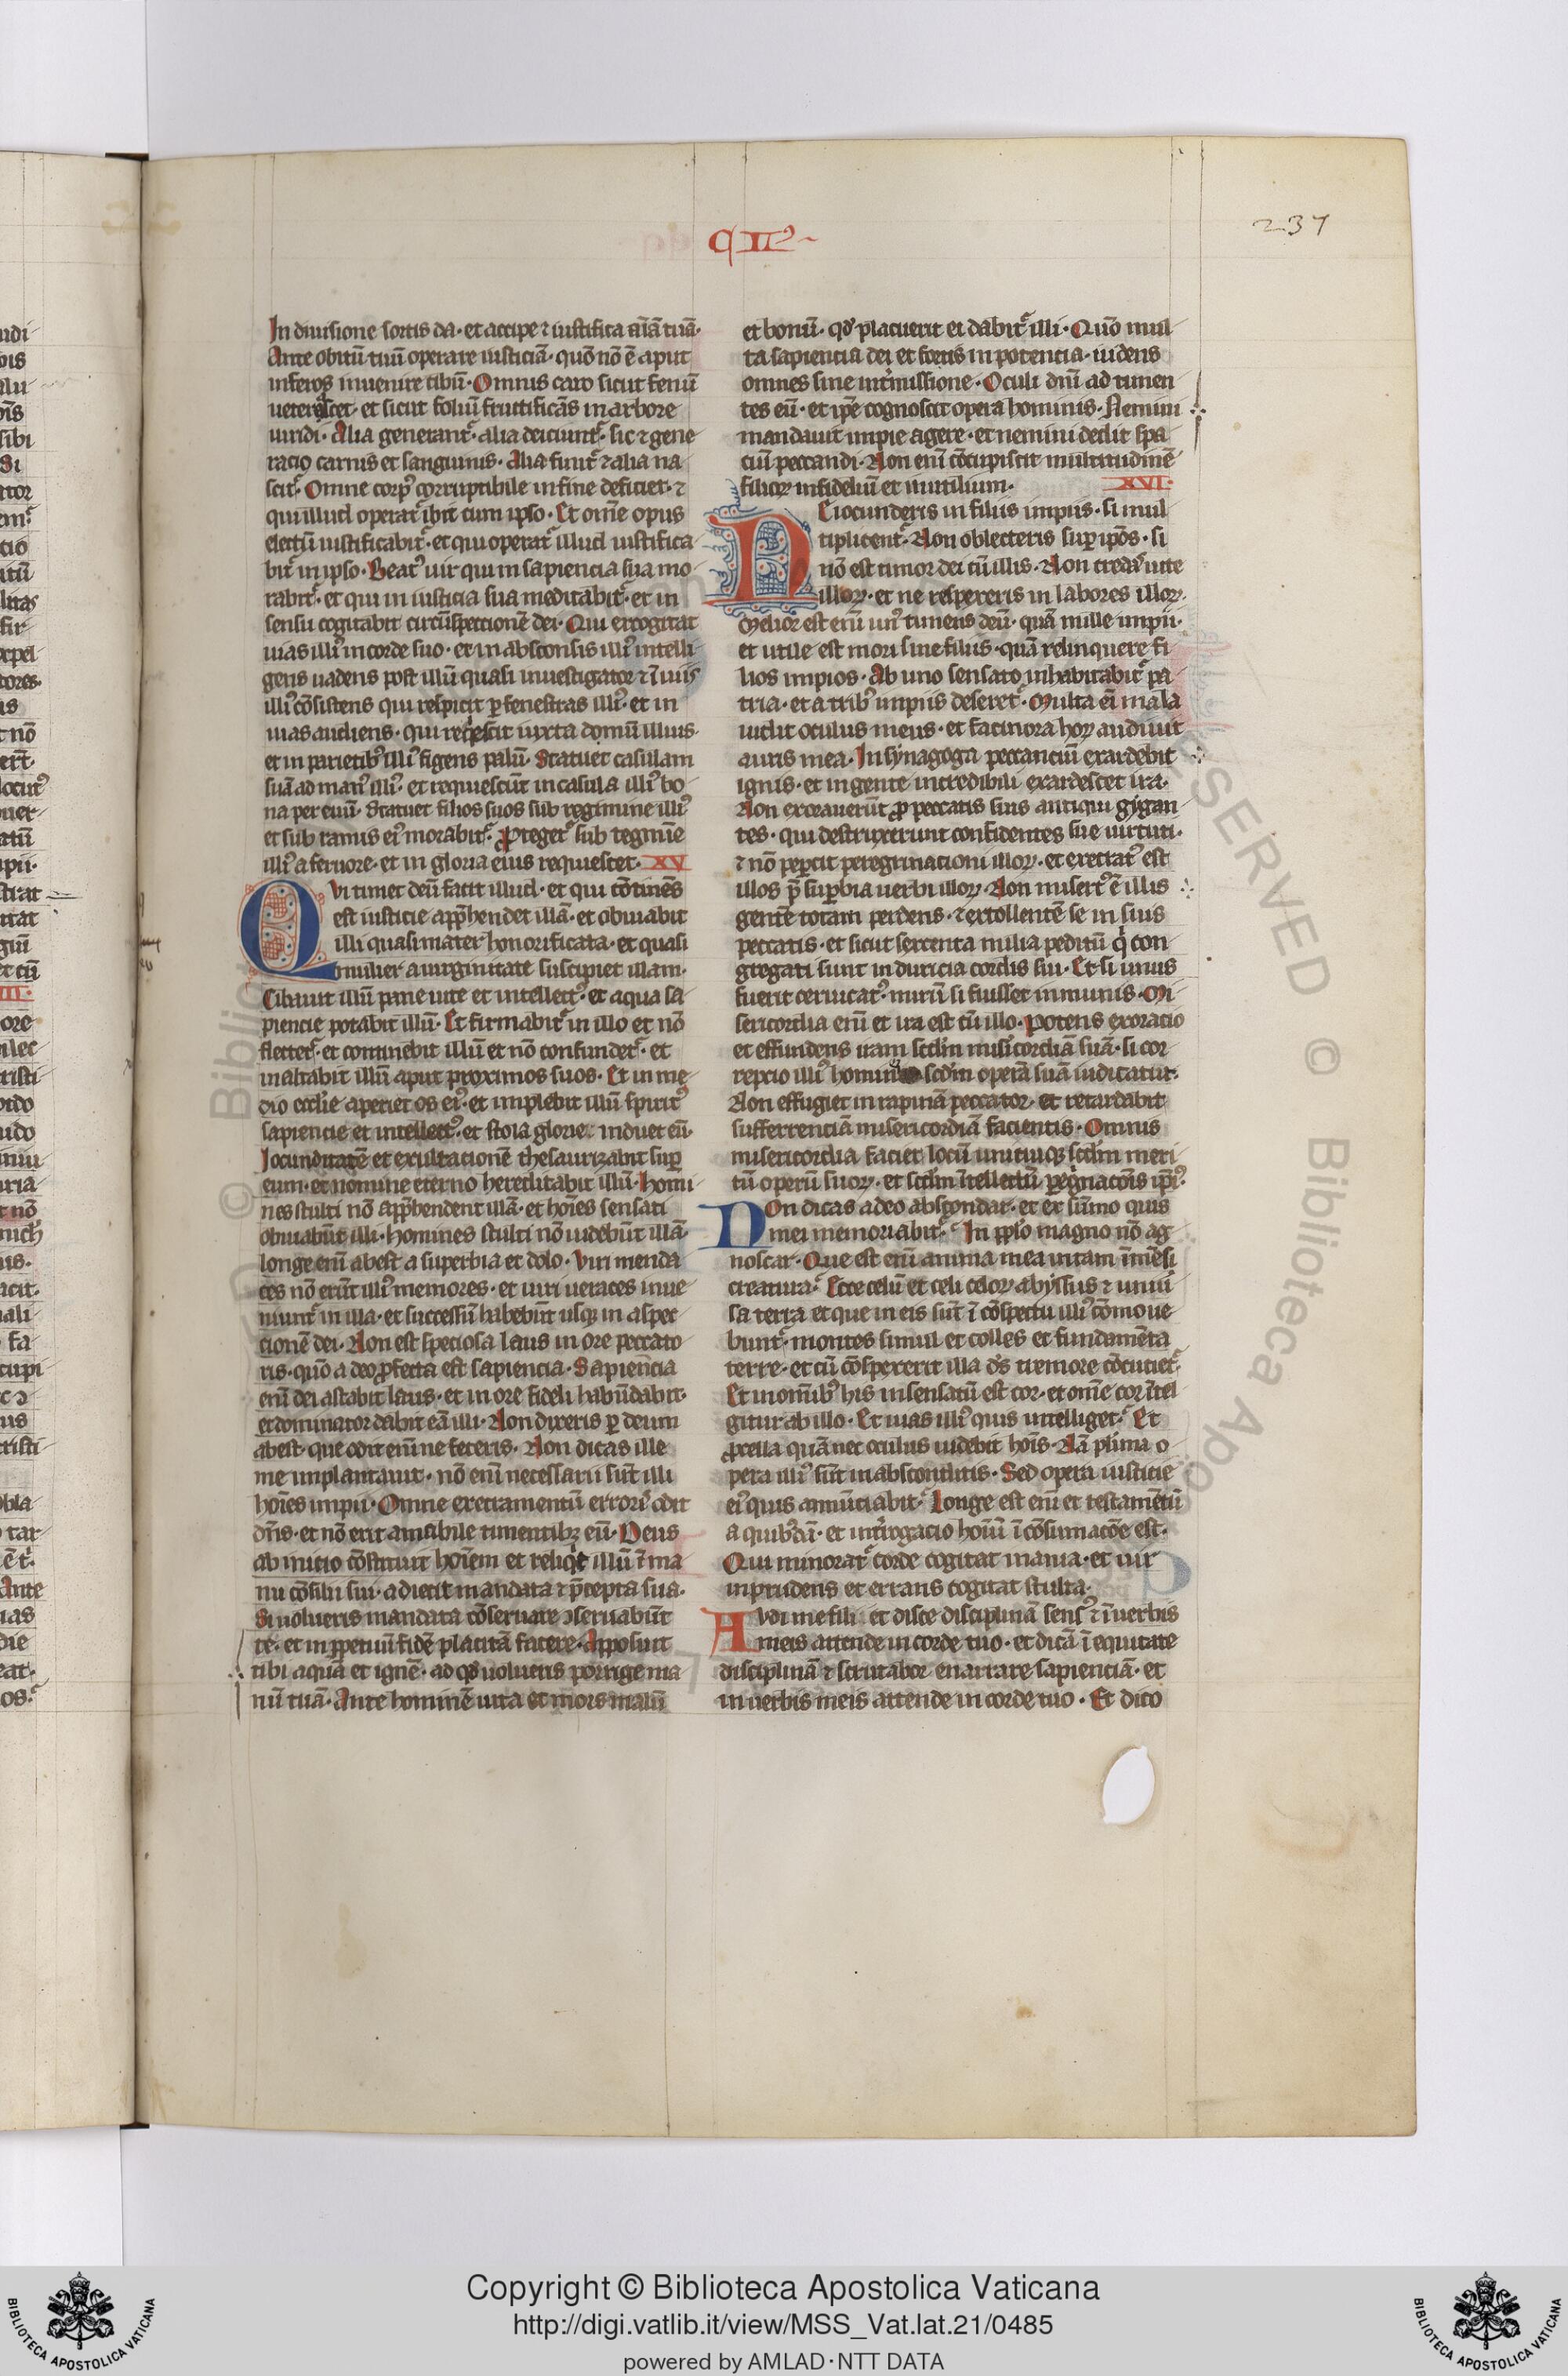 CIꝰ
237
In diuisione sortis da· et accipe ⁊ iustifica aīaʒ tuā·
Ante obitū tuū operare iusticiā· quō nō ē aput
inferos inuenire cibū· Omnis caro sicut fenū
ueterascet· et sicut foliū fructificās in arbore
uiridi· Alia generant᷑· alia deiciunt᷑· sic ⁊ gene
racio carnis et sanguinis· Alia finit᷑ ⁊ alia na
scit᷑· Omne corpꝰ corruptibile in fine deficiet· ⁊
qui illud operat᷑ ibit cum ipso· Et om̄e opus
electū iustificabit᷑· et qui operat᷑ illud iustifica
bit᷑ in ipso· Beatꝰ uir qui in sapiencia sua mo
rabit᷑· et qui in iusticia sua meditabit᷑· et in
sensu cogitabit circūspectionē dei· Qui excogitat
uias illiꝰ in corde suo· et in absconsis illiꝰ intelli
gens uadens post illū quasi inuestigator ⁊ ī uiis
illiꝰ cōsistens qui respicit ꝑ fenestras illiꝰ· et in
uias audiens· qui reqͥescit iuxta domū illius·
et in parietibꝰ illiꝰ figens palū· Statuet casulam
suā ad manꝰ illiꝰ· et requiescūt in casula illiꝰ bo
na per euū· Statuet filios suos sub tegimine illiꝰ
et sub ramis eiꝰ morabit᷑· Proteget᷑ sub tegmīe
illiꝰ a feruore· et in gloria eius requiescet· XV
Qui timet deū faciet illud· et qui cōtinēs
est iusticie app̄hendet illā· et obuiabit
illi quasi mater honorificata· et quasi
mulier a uirginitate suscipiet illam·
Cibauit illū pane uite et intellectꝰ· et aqua sa
piencie potabit illū· Et firmabit᷑ in illo et nō
flectet᷑· et continebit illū et nō confundet᷑· et
inaltabit illū aput proximos suos· Et in me
dio ecclīe aperiet os eiꝰ· et implebit illū spiritꝰ
sapiencie et intellectꝰ· et stola glorie induet eū·
Jocunditatē et exultationē thesaurizabit suꝑ
eum· et nomine eterno hereditabit illū· Homi
nes stulti nō app̄hendent illā· et hoīes sensati
obuiabūt illi· homines stulti nō uidebūt illā·
longe enī abest a superbia et dolo· Viri menda
ces nō erūt illiꝰ memores· et uiri ueraces inue
niunt᷑ in illa· et successū habebūt usqꝫ in aspec
tionē dei· Non est speciosa laus in ore peccato
ris· quō a deo ꝓfecta est sapiencia· Sapiencia
enī dei astabit laus· et in ore fideli habūdabit·
et dominator dabit eā illi· Non dixeris ꝑ deum
abest· que odit enī ne feceris· Non dicas ille
me implantauit· nō enī necessarii sūt illi
hoīes impii· Omne execramentū erroris odit
dn̄s· et nō erit amabile timentibꝫ eū· Deus
ab initio cōstituit hoīem et reliqͥt illū ī ma
nu cōsilii sui· adiecit mandata ⁊ p̄cepta sua·
Si uolueris mandata cōseruare ↄseruabūt
te· et in ꝑpetuū fidē placitā facere· Apposuit
tibi aquā et ignē· ad qd̄ uolueris porrige ma
nū tuā· Ante hominē uita et mors malū
et bonū· qd̄ placuerit ei dabit᷑ illi· Quō mul
ta sapiencia dei et fortis in potencia· uidens
omnes sine int̄missione· Oculi dn̄i ad timen
tes eū· et ip̄e cognoscit opera hominis· Nemini
mandauit impie agere· et nemini dedit spa
ciū peccandi· Non enī cōcupiscit multitudinē
filioꝝ infideliū et inutilium· XVI·
NE iocunderis in filiis impiis· si mul
tiplicent᷑· Non oblecteris suꝑ ip̄os· si
nō est timor dei cū illis· Non credas uite
illoꝝ· et ne respexeris in labores illoꝝ·
Melior est enī unꝰ timens deū· quā mille impii·
et utile est mori sine filiis· quā relinquere fi
lios impios· Ab uno sensato inhabitabit᷑ pa
tria· et a tribꝰ impiis deseret᷑· Multa eī mala
uidit oculus meus· et faciora hoꝝ audiuit
auris mea· In synagoga peccanciū exardebit
ignis· et in gente incredibili exardescet ira·
Non exorauerūt ꝓ peccatis suis antiqui gygan
tes· qui destruxerunt confidentes sue uirtuti·
⁊ nō peꝑcit peregrinationi illoꝝ· et execratꝰ est
illos p̄ suꝑbia uerbi illoꝝ· Non misertꝰ ē illis
gentē totam perdens· ⁊ extollentē se in suis
peccatis· et sicut sexcenta milia peditū qͥ con
gregati sunt in duricia cordis sui· Et si unus
fuerit ceruicatꝰ· mirū si fuisset inmunis· Mi
sericordia enī et ira est cū illo· Potens exoracio
et effundens iram scd̄m mīs̄icordiā suā· si cor
repcio illiꝰ homines scd̄m opera sua iudicatur·
Non effugiet in rapinā peccator· et retardabit
sufferrenciā misericordiā facientis· Omnis
misericordia faciet locū unicuiqꝫ scd̄m meri
tū operū suoꝝ· et scd̄m ītellectū ꝑegͥnacōis ip̄iꝰ·
Non dicas a deo abscondar· et ex sūmo quis
mei memorabit᷑· In pplo magno nō ag
noscar· Que est enī anima mea in tam īmēsa
creatura· Ecce celū et celi celoꝝ abyssus ⁊ uniū
sa terra et que in eis sūt ī cōspectu illiꝰ cōmoue
bunt᷑· montes simul et colles et fundamēta
terre· et cū cōspexerit illa dꝰs tremore cōcutiet᷑·
Et in om̄ibꝰ his insensatū est cor· et om̄e cor ītel
gitur ab illo· Et uias illiꝰ quis intelliget· Et
ꝓcella quā nec oculus uidebit hoīs· Nā plīma o
pera illiꝰ sūt in absconditis· Sed opera iusticie
eiꝰ quis annūciabit· Longe est enī et testamētū
a quibꝰdā· et int̄rogacio hoīū ī cōsūmacōe est·
Qui minorat᷑ corde cogitat inania· et uir
inprudens et errans cogitat stulta·
Audi me fili et disce disciplinā sensꝰ ⁊ ī uerbis
meis attende in corde tuo· et dicā ī equitate
disciplinā ⁊ scrutabor enarrare sapienciā· et
in uerbis meis attende in corde tuo· Et dico
Copyright © Biblioteca Apostolica Vaticana
http://digi.vatlib.it/view/MSS_Vat.lat.21/0485
powered by AMLAD·NTT DATA
BIBLIOTECA APOSTOLICA VATICANA
BIBLIOTECA APOSTOLICA VATICANA